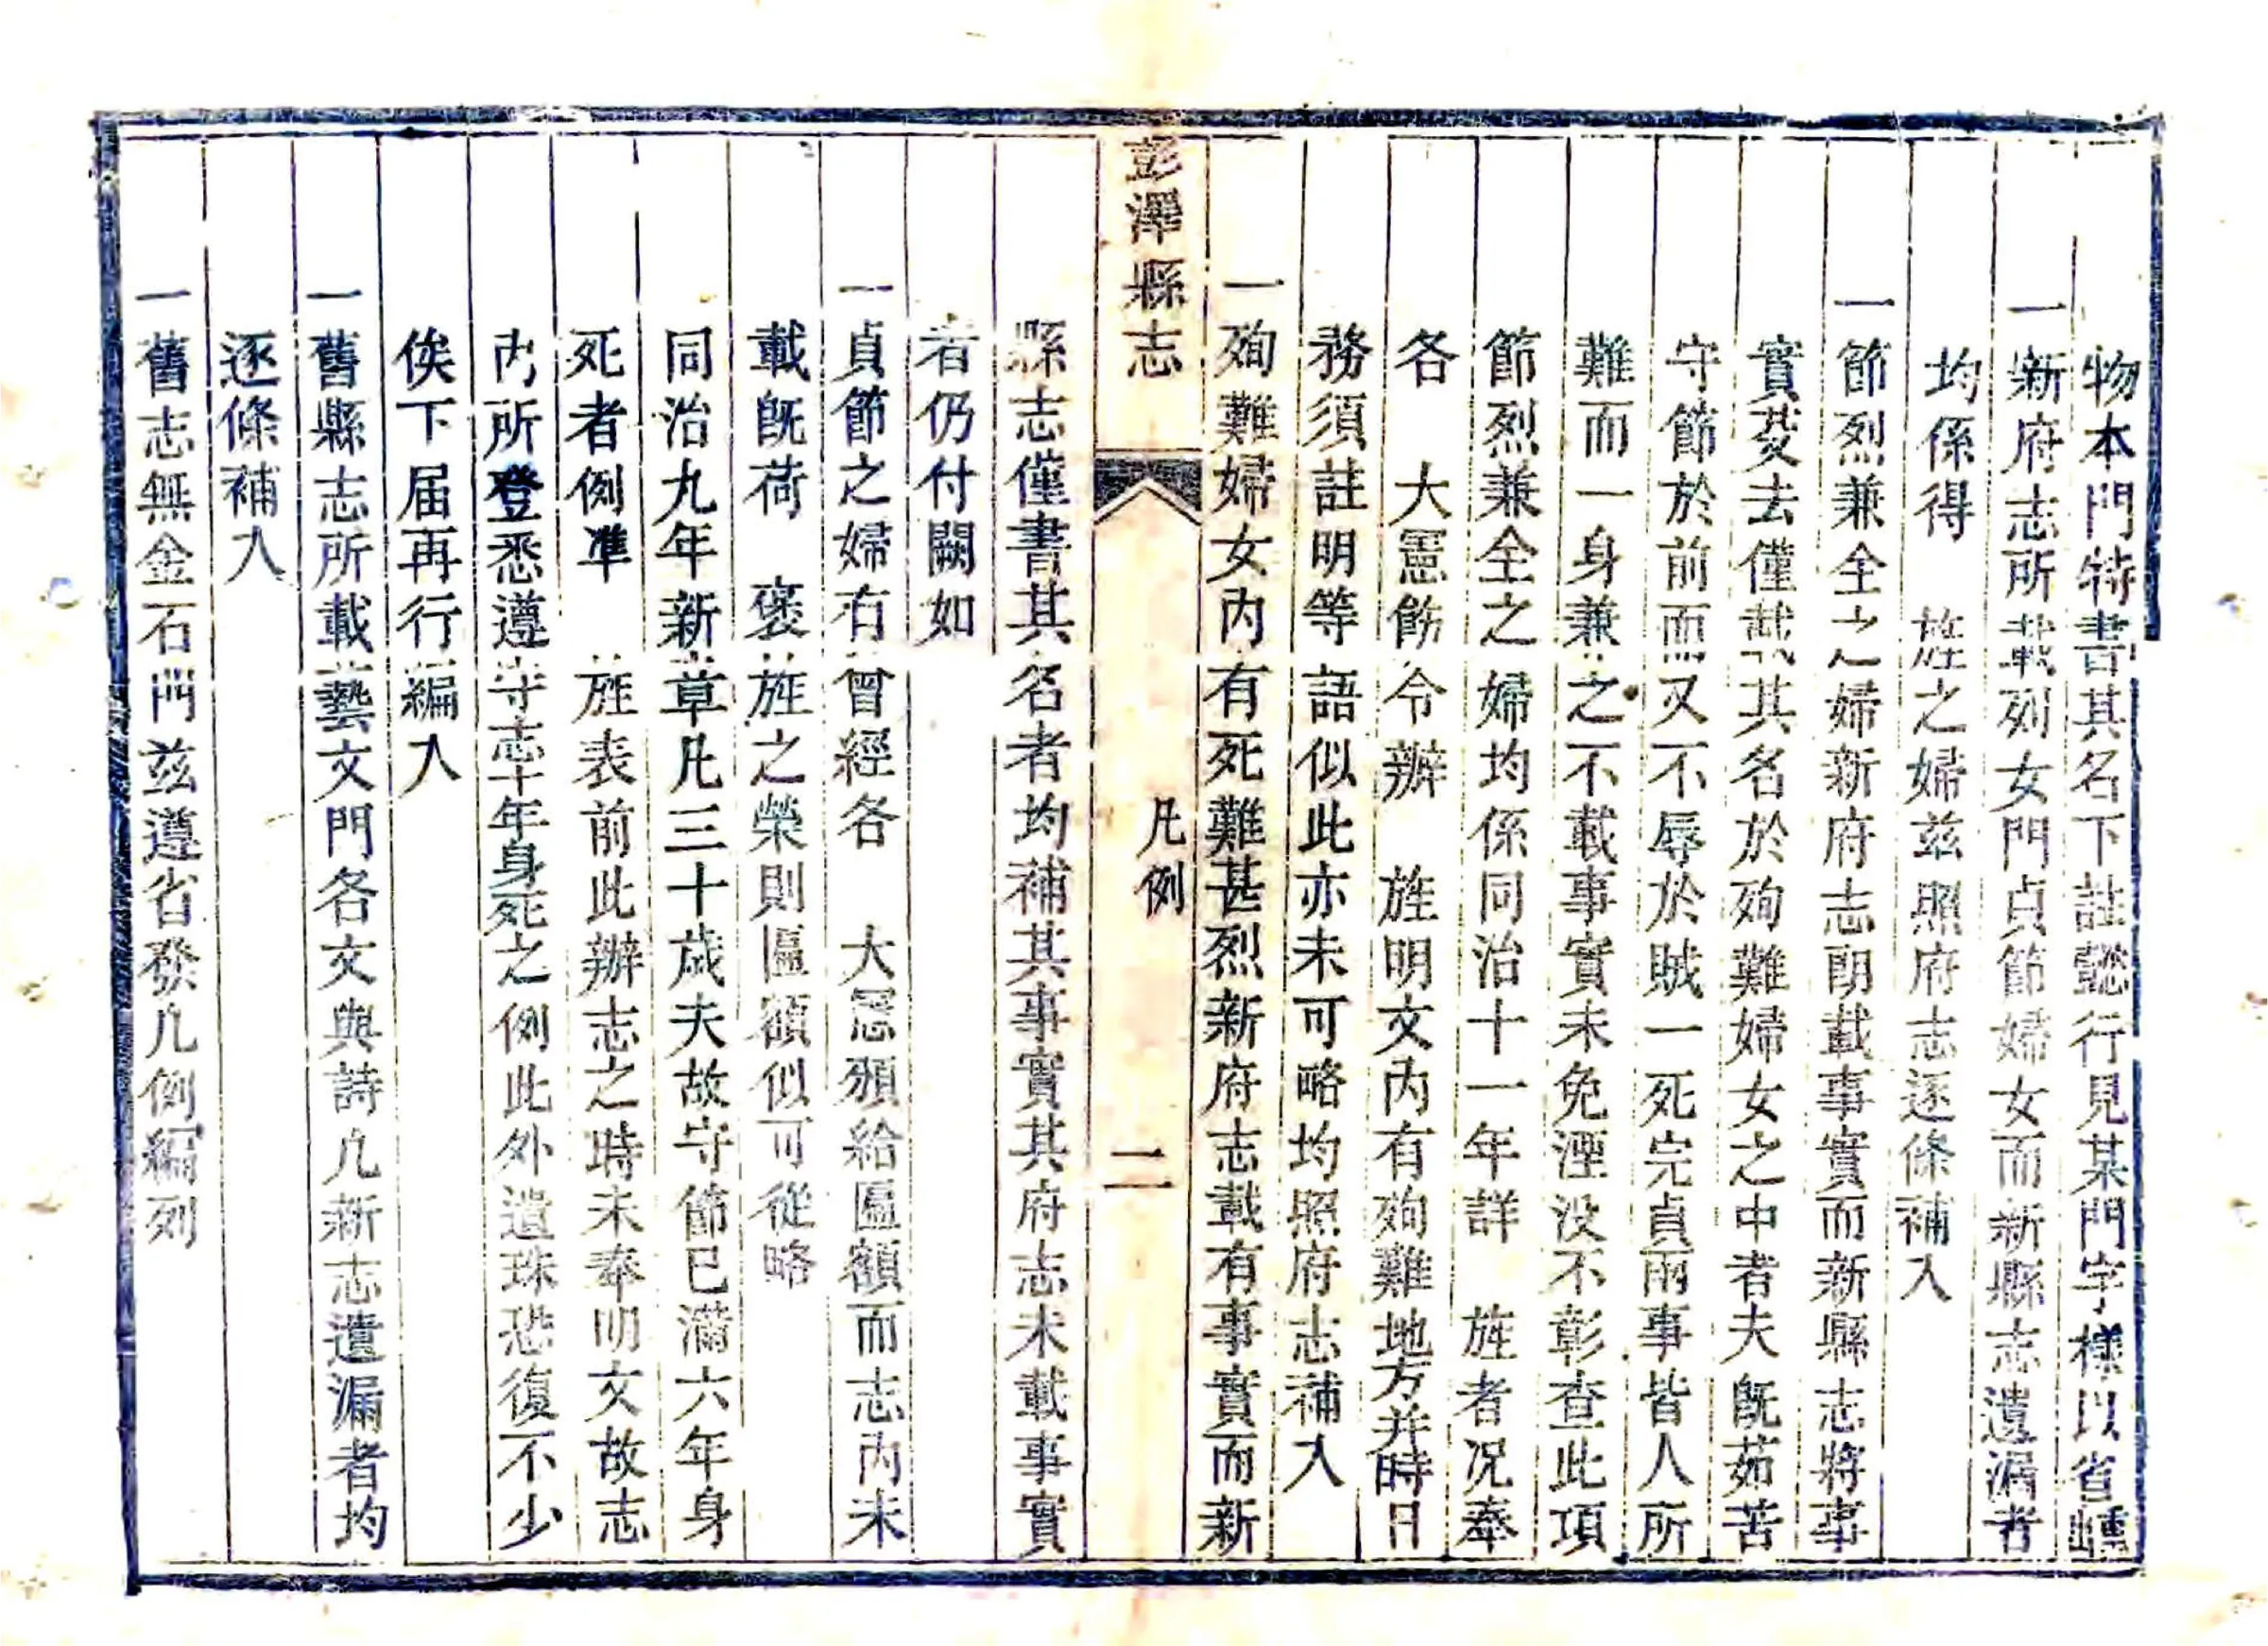 物本門特書其名下註懿行見某門字樣以省
一新府志所載列女門貞節婦女而新縣志遺漏者
均係得　旌之婦兹照府志逐條補入
一節烈兼全之婦新府志朗載事實而新縣志將事
實芟去僅載其名於殉難婦女之中者夫既茹苦
守節於前而又不辱於賊一死完貞兩事皆人所
難而一身兼之不載事實未免湮没不彰查此項
節烈兼全之婦均係同治十一年詳　旌者况奉
各　大憲飭令辦　旌明文內有殉難地方并時日
務須註明等語似此亦未可略均照府志補入
一殉難婦女內有死難甚烈新府志載有事實而新
彭澤縣志　凡例　二
縣志僅書其名者均補其事實其府志未載事實
者仍付闕如
一貞節之婦有曾經各　大憲頒給匾額而志內未
載既荷　褒旌之榮則匾額似可從略
同治九年新章凡三十歲夫故守節已滿六年身
死者例準　旌表前此辦志之時未奉明文故志
內所登悉遵守志十年身死之例此外遺珠恐復不少
俟下届再行編入
一舊縣志所載藝文門各文與詩凡新志遺漏者均
逐條補入
一舊志無金石門兹遵省發凡例編列